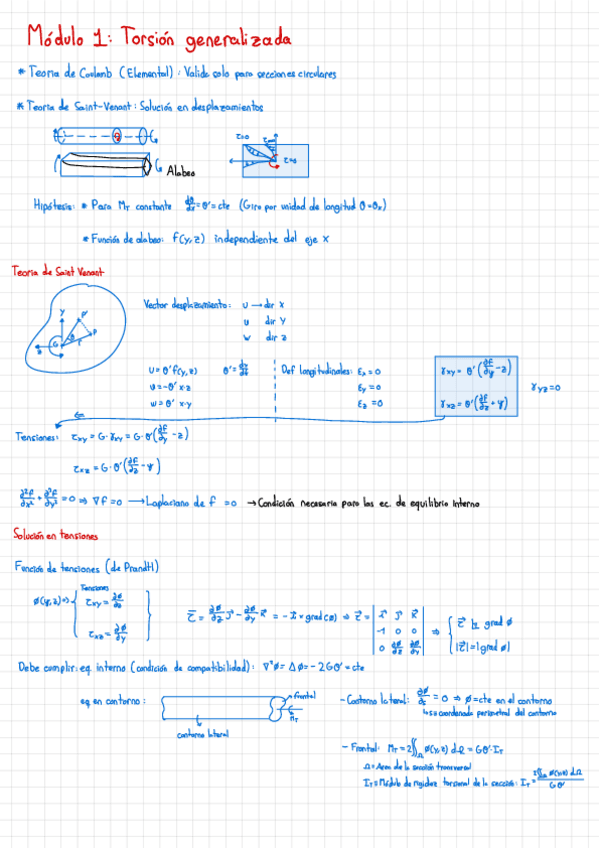 Módulo 1: Torsión generalizada
* Teoría de Coulomb (Elemental): Valida solo para secciones circulares
* Teoría de Saint-Venant: Solución en desplazamientos
Alabeo
Hipótesis: * Para MT constante dθ/dx = θ' = cte (Giro por unidad de longitud θ=θx)
* Función de alabeo: f(y,z) independiente del eje x
Teoría de Saint Venant
Vector desplazamiento: u → dir x
v dir y
w dir z
u = θ' f(y,z)
v = -θ' x·z
w = θ' x·y
Def longitudinales: εx = 0
εy = 0
εz = 0
γxy = θ'(∂f/∂y - z)
γxz = θ'(∂f/∂z + y)
γyz = 0
Tensiones: τxy = G·γxy = G·θ'(∂f/∂y - z)
τxz = G·θ'(∂f/∂z - y)
∂²f/∂x² + ∂²f/∂y² = 0 ⇒ ∇f = 0 → Laplaciano de f = 0 → Condición necesaria para las ec. de equilibrio interno
Solución en tensiones
Función de tensiones (de Prandtl)
Tensiones
ϕ(y,z) ⇒ { τxy = ∂ϕ/∂z
τxz = ∂ϕ/∂y }
= -i × grad(ϕ) ⇒ τ = | i j k |
| -1 0 0 |
|τ| = |grad ϕ|
Debe cumplir: eq. interno (condición de compatibilidad): ∇²ϕ = Δϕ = -2Gθ' = cte
eq en contorno:
frontal
MT
contorno lateral
- Contorno lateral: ∂ϕ/∂s = 0 ⇒ ϕ = cte en el contorno
↳ s = coordenada perimetral del contorno
- Frontal: MT = 2∬Ω ϕ(y,z) dΩ = Gθ'·IT
Ω = Área de la sección transversal
IT = Módulo de rigidez torsional de la sección: IT = 2∬Ω ϕ(y,z) dΩ / Gθ'